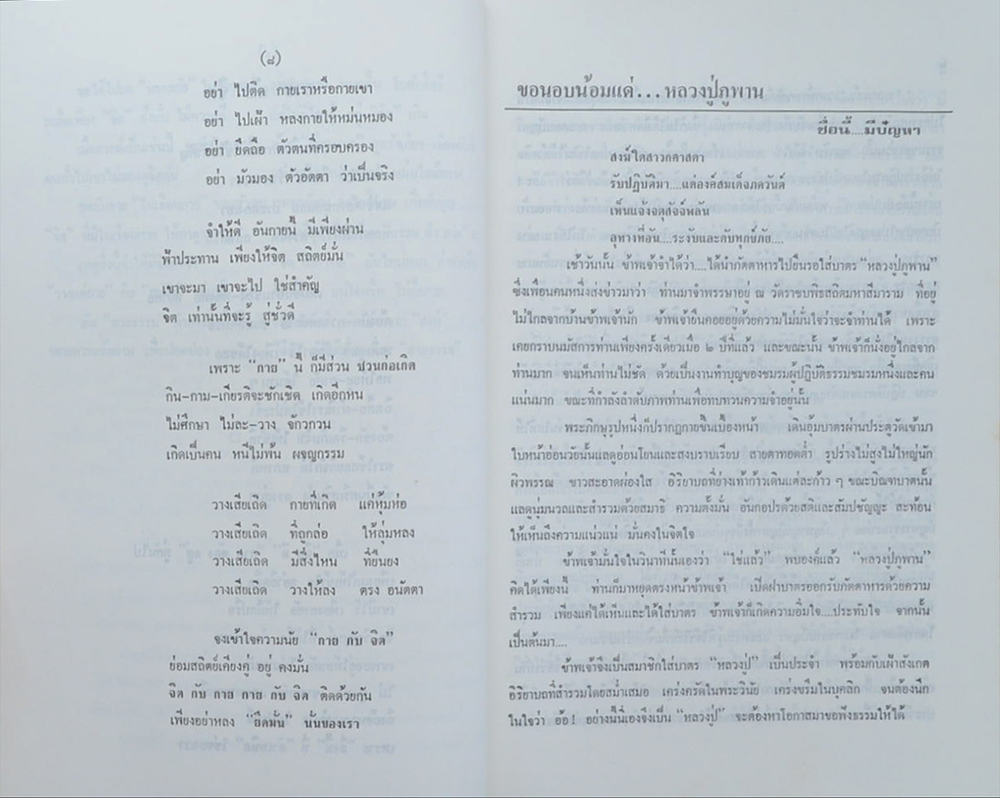 (๘)
อย่า ไปติด กายเราหรือกายเขา
อย่า ไปเฝ้า หลงกายให้หม่นหมอง
อย่า ยึดถือ ตัวตนที่ครอบครอง
อย่า มัวมอง ตัวอัตตา ว่าเป็นจริง
จำให้ดี อันกายนี้ มีเพียงผ่าน
ฟ้าประทาน เพียงให้จิต สถิตย์มั่น
เขาจะมา เขาจะไป ใช่สำคัญ
จิต เท่านั้นที่จะรู้ สู่ชั่วดี
เพราะ “กาย” นี้ ก็มีส่วน ชวนก่อเกิด
กิน-กาม-เกียรติจะชักเชิด เกิดอีกหน
ไม่ศึกษา ไม่ละ-วาง จักวกวน
เกิดเป็นคน หนีไม่พ้น ผจญกรรม
วางเสียเถิด กายที่เกิด แค่หุ้มห่อ
วางเสียเถิด ที่ถูกล่อ ให้ลุ่มหลง
วางเสียเถิด มีสิ่งไหน ที่ยืนยง
วางเสียเถิด วางให้ลง ตรง อนัตตา
จงเข้าใจความนัย “กาย กับ จิต”
ย่อมสถิตย์เคียงคู่ อยู่ คงมั่น
จิต กับ กาย กาย กับ จิต ติดด้วยกัน
เพียงอย่าหลง “ยึดมั่น” นั่นของเรา
ขอนอบน้อมแด่...หลวงปู่ภูพาน
ชื่อนี้....มีปัญหา
สงฆ์ใดสาวกศาสดา
รับปฏิบัติมา....แต่องค์สมเด็จภควันต์
เห็นแจ้งจตุสัจจ์พลัน
ลุทางที่อัน....ระงับและดับทุกข์ภัย....
เช้าวันนั้น ข้าพเจ้าจำได้ว่า....ได้นำภัตตาหารไปยืนรอใส่บาตร “หลวงปู่ภูพาน”
ซึ่งเพื่อนคนหนึ่งส่งข่าวมาว่า ท่านมาจำพรรษาอยู่ ณ วัดราชบพิธสถิตมหาสีมาราม ที่อยู่
ไม่ไกลจากบ้านข้าพเจ้านัก ข้าพเจ้ายืนคอยอยู่ด้วยความไม่มั่นใจว่าจะจำท่านได้ เพราะ
เคยกราบนมัสการท่านเพียงครั้งเดียวเมื่อ ๒ ปีที่แล้ว และขณะนั้น ข้าพเจ้าก็นั่งอยู่ไกลจาก
ท่านมาก จนเห็นท่านไม่ชัด ด้วยเป็นงานทำบุญของชมรมผู้ปฏิบัติธรรมชมรมหนึ่งและคน
แน่นมาก ขณะที่กำลังลำดับภาพท่านเพื่อทบทวนความจำอยู่นั้น
พระภิกษุรูปหนึ่งก็ปรากฏกายขึ้นเบื้องหน้า เดินอุ้มบาตรผ่านประตูวัดเข้ามา
ใบหน้าอ่อนวัยนั้นแลดูอ่อนโยนและสงบราบเรียบ สายตาทอดต่ำ รูปร่างไม่สูงไม่ใหญ่นัก
ผิวพรรณ ขาวสะอาดผ่องใส อิริยาบถที่ย่างเท้าก้าวเดินแต่ละก้าว ๆ ขณะบิณฑบาตนั้น
แลดูนุ่มนวลและสำรวมด้วยสมาธิ ความตั้งมั่น อันกอปรด้วยสติและสัมปชัญญะ สะท้อน
ให้เห็นถึงความแน่วแน่ มั่นคงในจิตใจ
ข้าพเจ้ามั่นใจในวินาทีนั้นเองว่า “ใช่แล้ว” พบองค์แล้ว “หลวงปู่ภูพาน”
คิดได้เพียงนี้ ท่านก็มาหยุดตรงหน้าข้าพเจ้า เปิดฝาบาตรออกรับภัตตาหารด้วยความ
สำรวม เพียงแค่ได้เห็นและได้ใส่บาตร ข้าพเจ้าก็เกิดความอิ่มใจ....ประทับใจ จากนั้น
เป็นต้นมา....
ข้าพเจ้าจึงเป็นสมาชิกใส่บาตร “หลวงปู่” เป็นประจำ พร้อมกับเฝ้าสังเกต
อิริยาบถที่สำรวมโดยสม่ำเสมอ เคร่งครัดในพระวินัย เคร่งขรึมในบุคลิก จนต้องนึก
ในใจว่า อ้อ ! อย่างนี้นี่เองจึงเป็น “หลวงปู่” จะต้องหาโอกาสมาขอฟังธรรมให้ได้